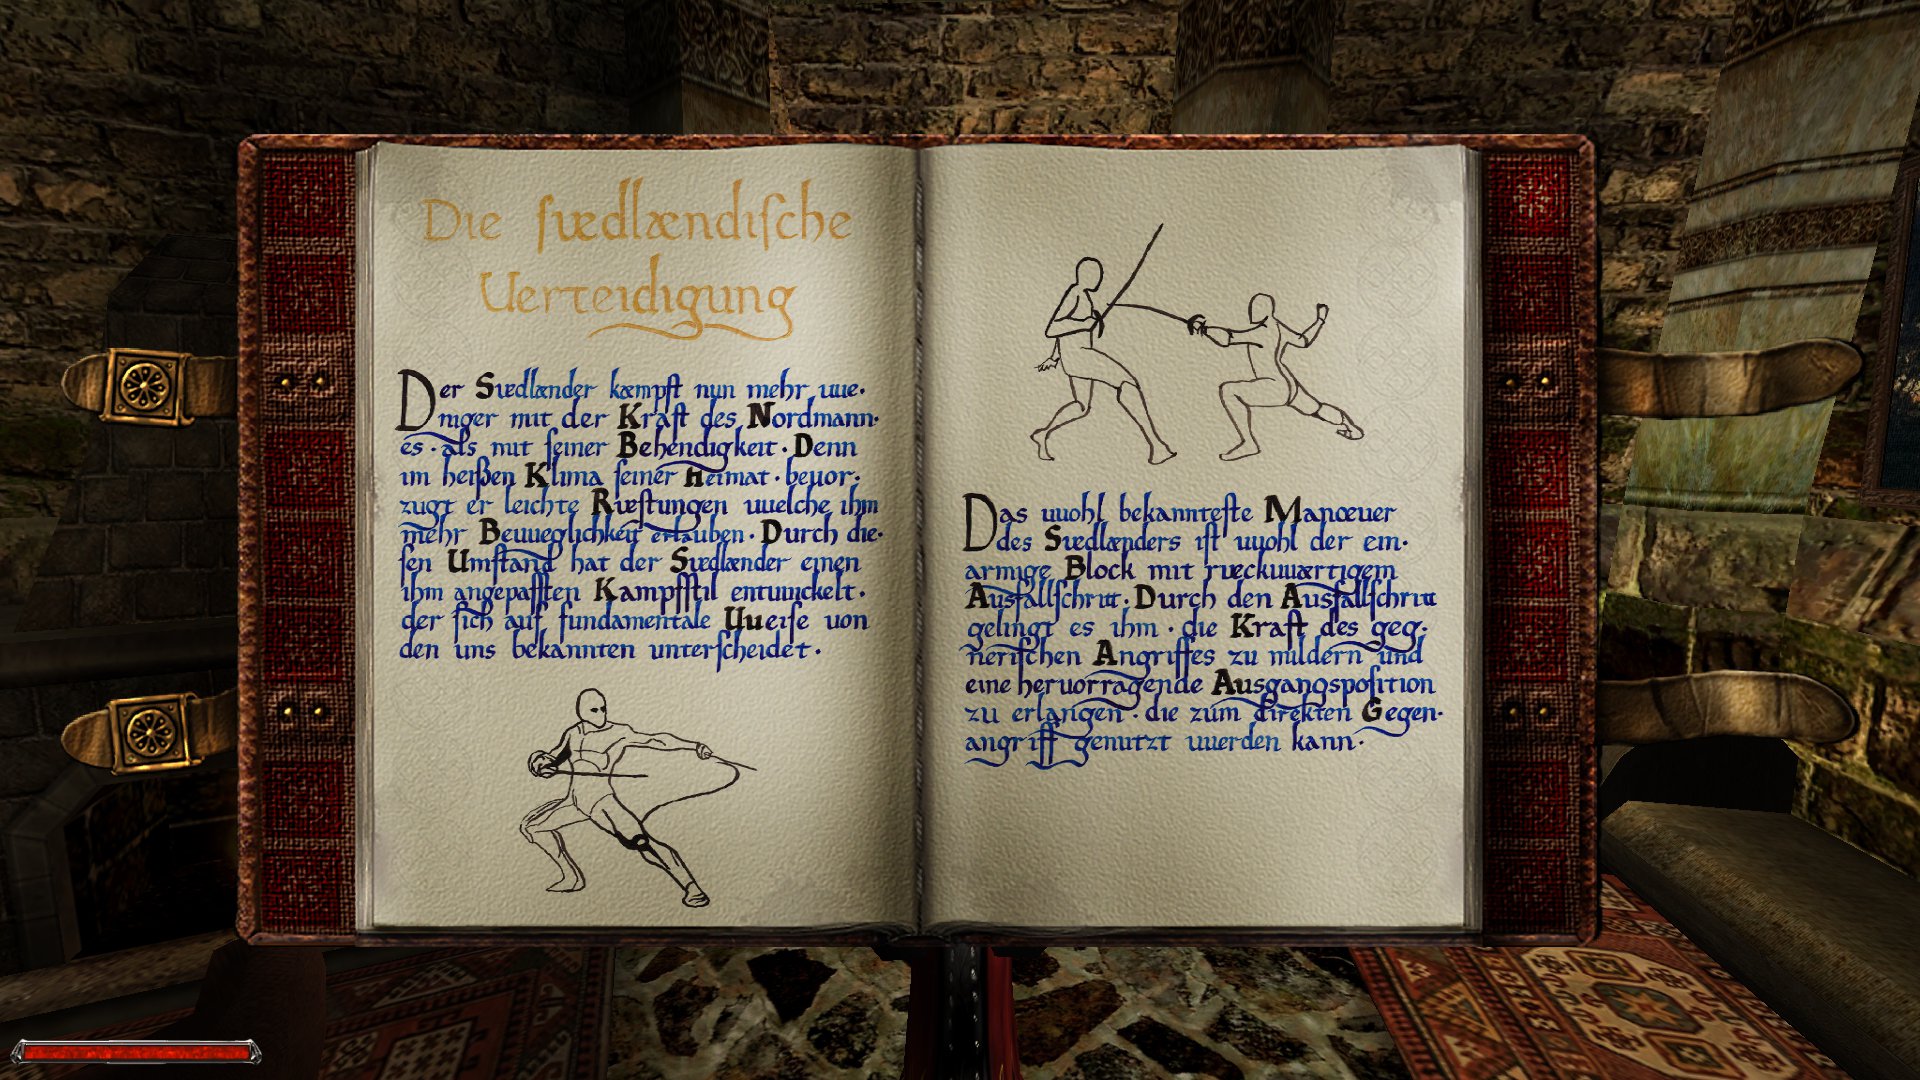 Die ſuedlaendiſche
Uerteidigung
Der Suedlaender kaempft nun mehr uue·
niger mit der Kraft des Nordmann·
es · als mit ſeiner Behendigkeit · Denn
im heißen Klima ſeiner Heimat · beuor·
zugt er leichte Rueſtungen uuelche ihm
mehr Beuueglichkeit erlauben · Durch die·
ſen Umſtand hat der Suedlaender einen
ihm angepaſſten Kampfſtil entuuickelt ·
der ſich auf fundamentale Uueiſe uon
den uns bekannten unterſcheidet ·
Das uuohl bekannteſte Manoeuer
des Suedlaenders iſt uuohl der ein·
armige Block mit rueckuuaertigem
Ausfallſchritt · Durch den Ausfallſchritt
gelingt es ihm · die Kraft des geg·
neriſchen Angriffes zu mildern und
eine heruorragende Ausgangspoſition
zu erlangen · die zum direkten Gegen·
angriff genutzt uuerden kann ·